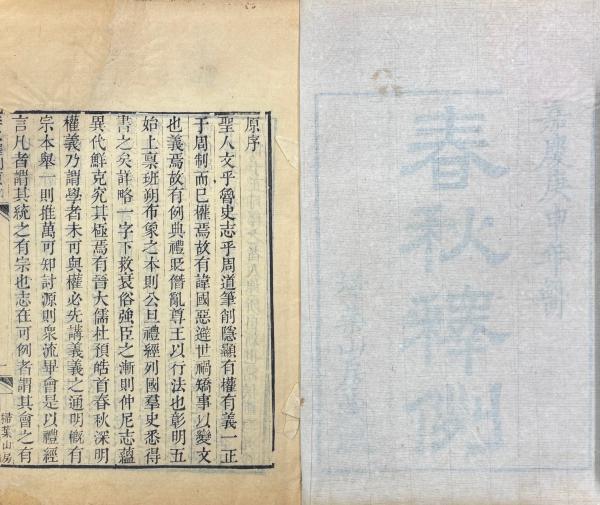 嘉慶庚申年刻
春秋釋例
掃葉山房
原序
聖人文乎魯史志乎周道筆削隱顯有權有義一正
于周制而已權焉故有諱國惡避世禍矯事以變文
也義焉故有例典禮貶僭亂尊王以行法也彰明五
始上稟班朔布象之本則公旦禮經列國羣史悉得
書之矣詳略一字下救衰俗強臣之漸則仲尼志蘊
異代鮮克究其極焉有晉大儒杜預皓首春秋深明
權義乃謂學者未可與權必先講義義之通明概有
宗本舉一則推萬可知討源則衆流畢會是以禮經
言凡者謂其統之有宗也志在可例者謂其會之有
一
掃葉山房